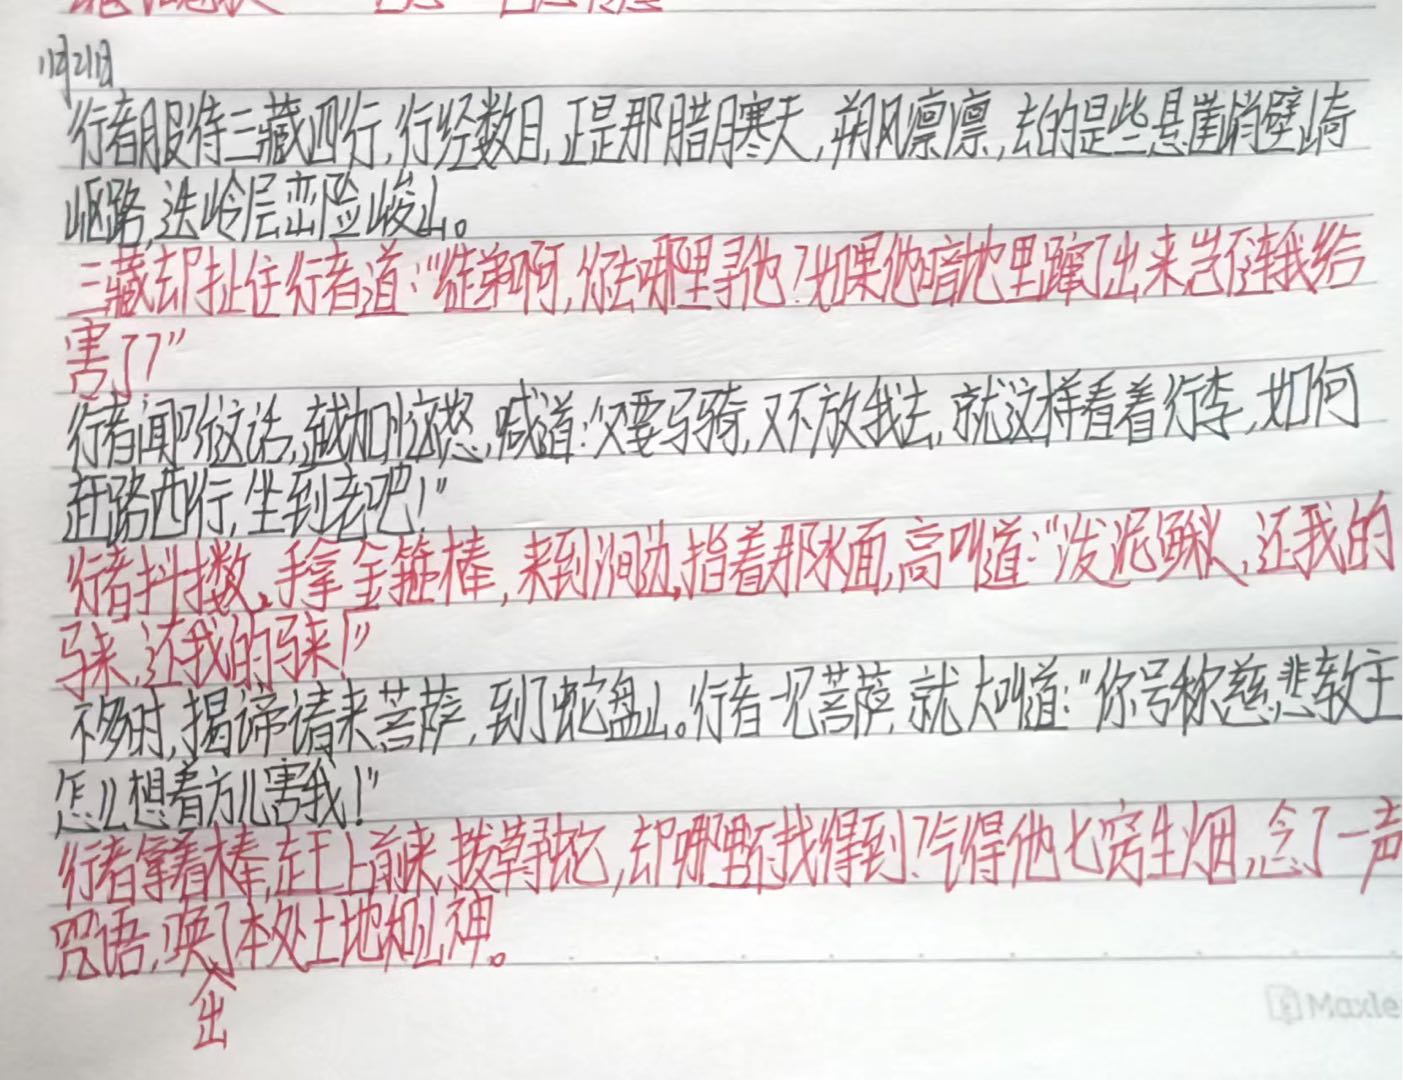 11月21日
行者服侍三藏西行,行经数日,正是那腊月寒天,朔风凛凛,去的是些悬崖峭壁崎
岖路,迭岭层峦险峻山。
三藏却扯住行者道:“徒弟啊,你去哪里寻他?如果他暗地里蹿了出来岂不连我给
害了?”
行者闻听这话,越加恼怒,喊道:“又要马骑,又不放我去,就这样看着行李,如何
赶路西行,坐到老吧!”
行者抖擞,手拿金箍棒,来到涧边,指着那水面,高叫道:“泼泥鳅,还我的
马来,还我的马来!”
不多时,揭谛请来菩萨,到了蛇盘山。行者一见菩萨,就大叫道:“你号称慈悲教主
怎么想着方儿害我!”
行者拿着棒,赶上前来,拨草寻蛇,却哪里还找得到?气得他七窍生烟,念了一声
咒语,唤了本处土地和山神。
出
Maxle